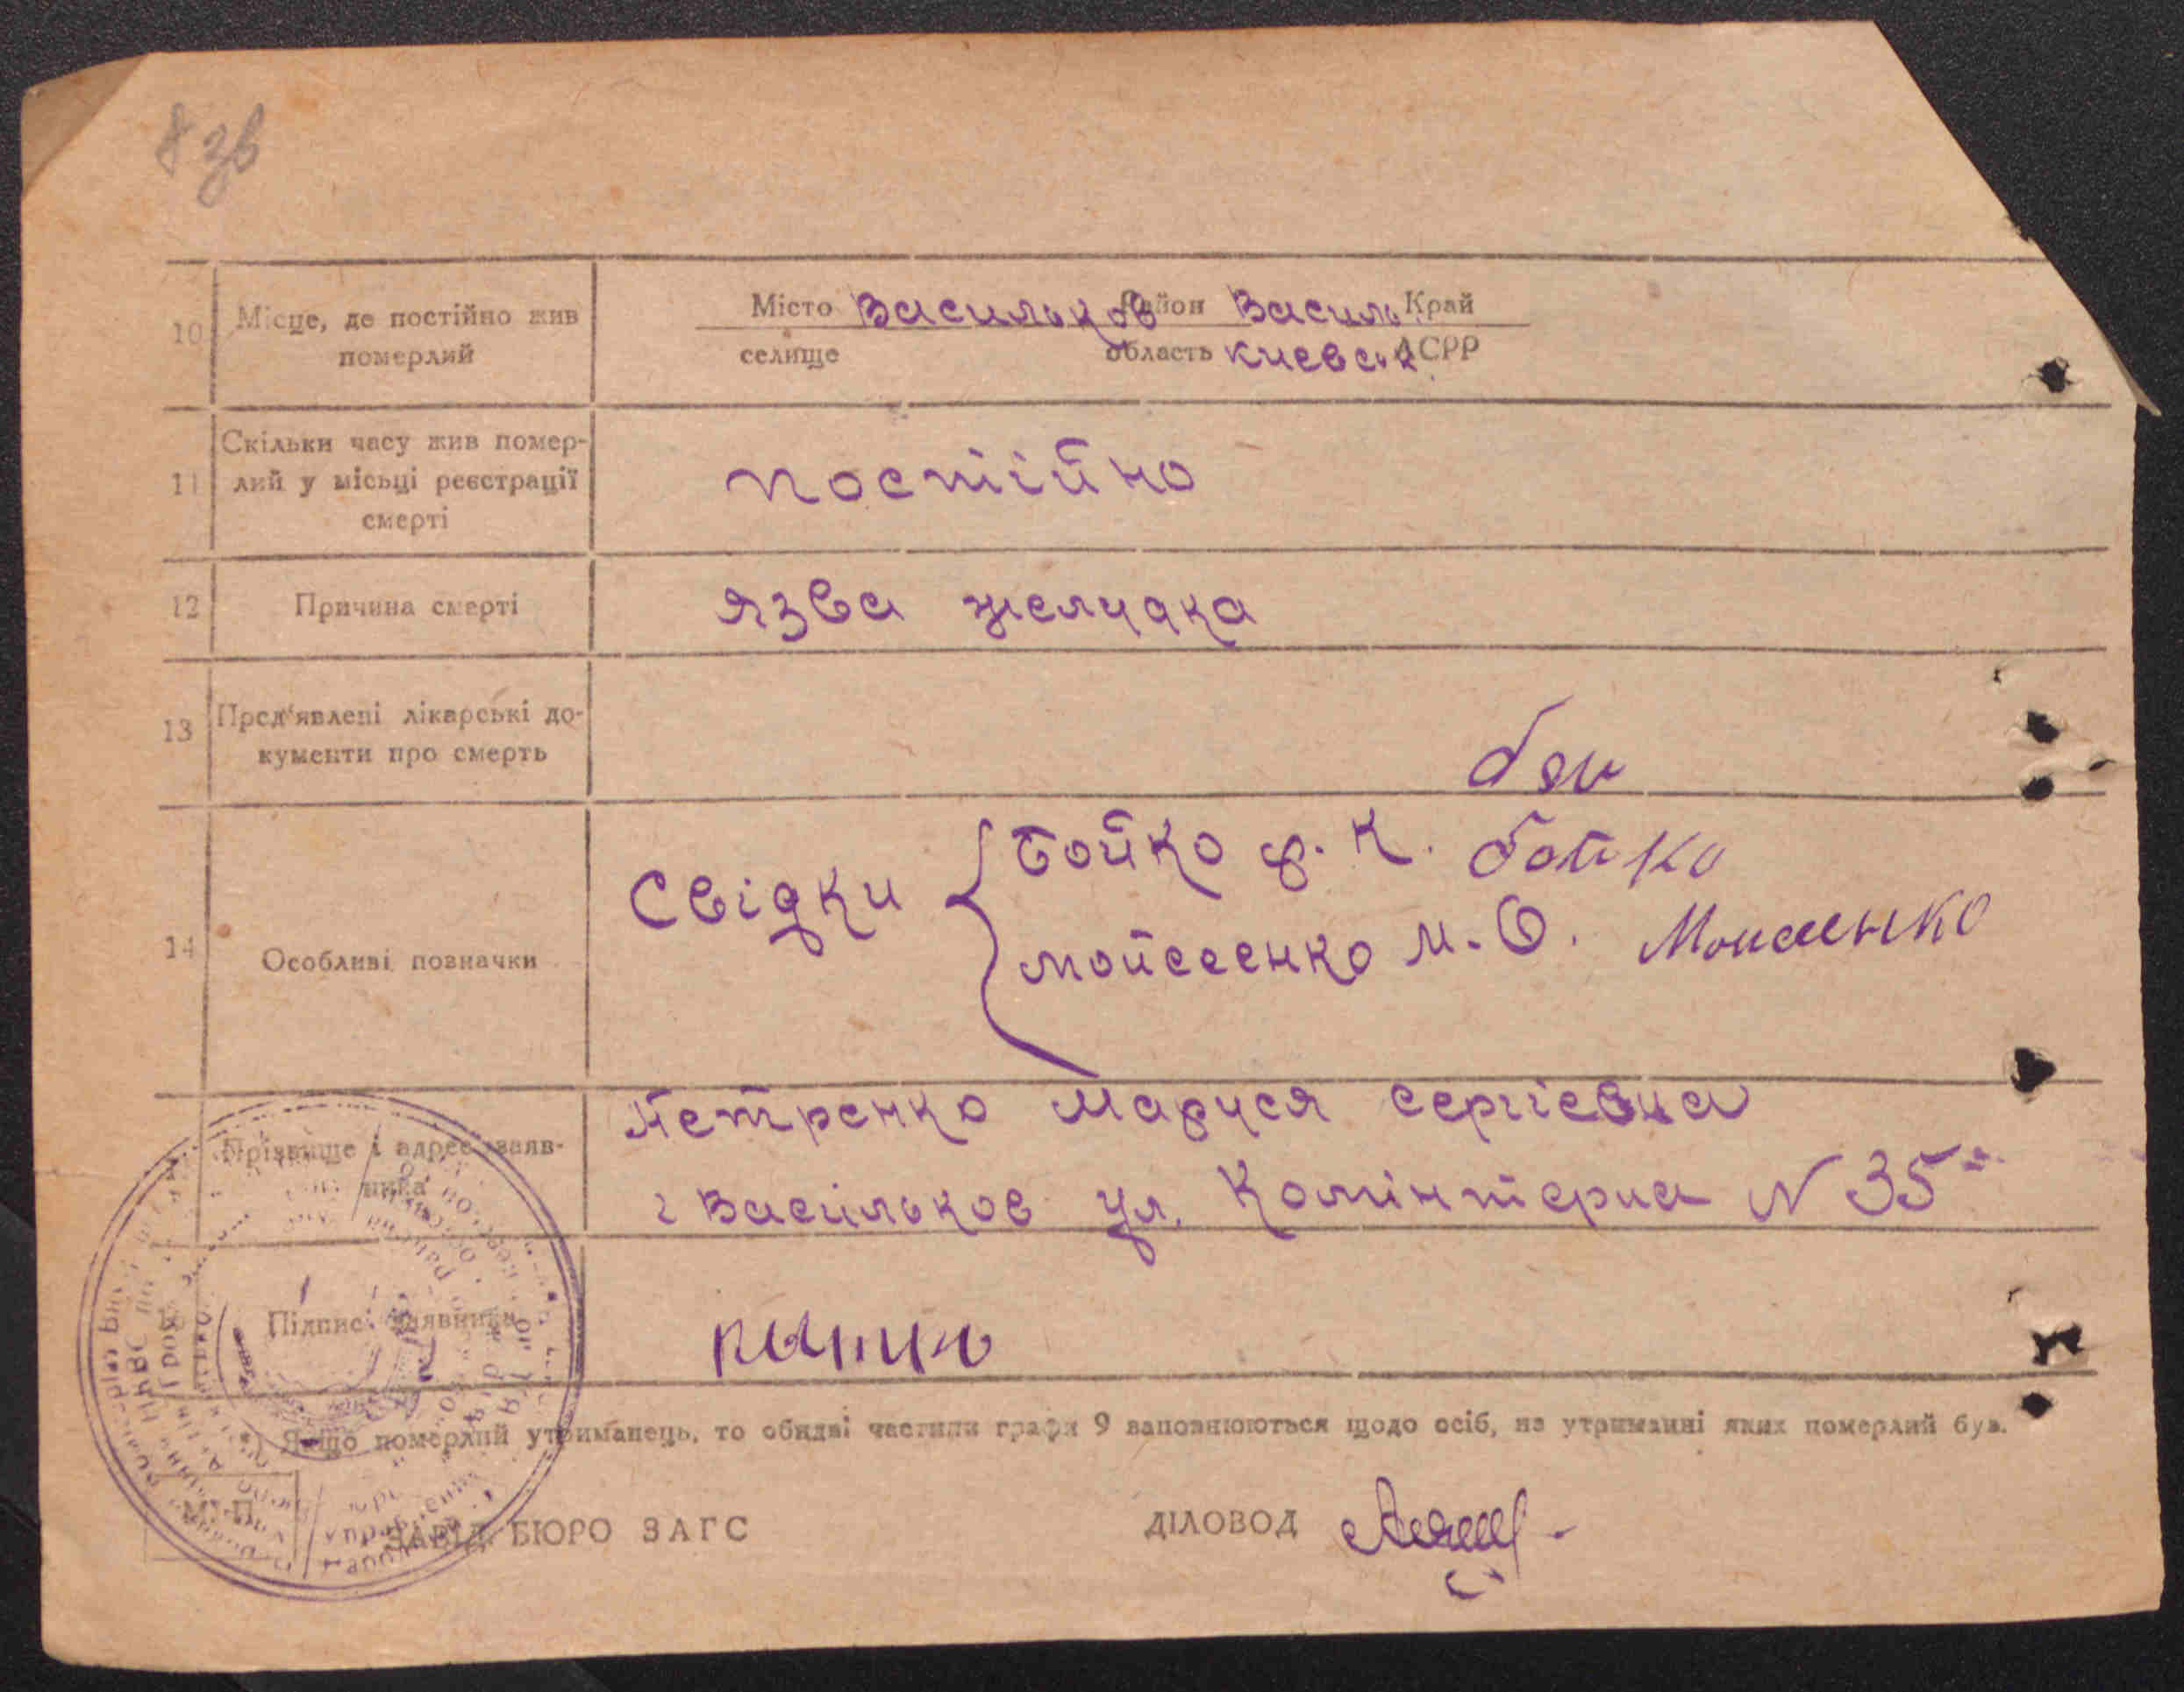 8 зв
10 Місце, де постійно жив померлий
Місто Васильков Район Василь. Край
селище область Киевськ. АСРР
11 Скільки часу жив помер-
лий у місьці реєстрації
смерті
постійно
12 Причина смерті язва желудка
13 Пред'явлені лікарські до-
кументи про смерть
14 Особливі позначки
Свідки
Бойко Ф. К. Бойко
Мойсеенко М. О. Моисеенко
Прізвище і адреса заяв-
ника
Петренко Маруся Сергіевна
г Васильков ул. Комінтерна N 35
Підпис заявника
*) Якщо померлий утриманець, то обидві частини графи 9 заповнюються щодо осіб, на утриманні яких померлий був.
М. П.
ЗАВІД. БЮРО ЗАГС ДІЛОВОД